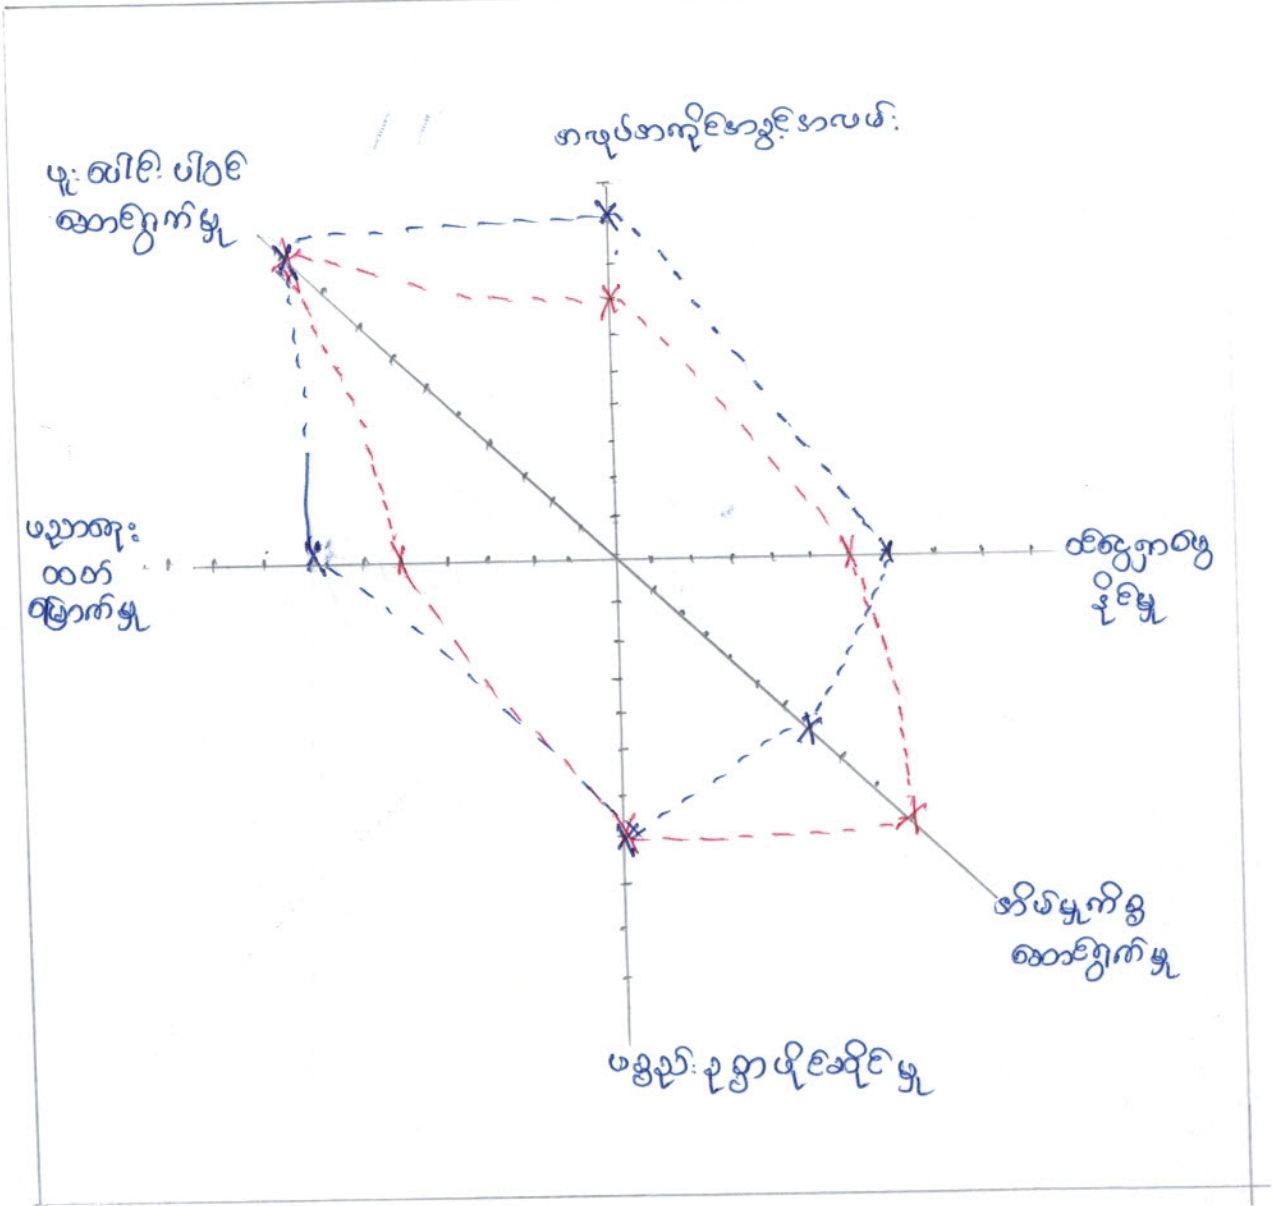 အလုပ်အကိုင်အခွင့်အလမ်း
ပူးပေါင်းပါဝင်
ဆောင်ရွက်မှု
ပညာရေး
ထတ်
မြောက်မှု
ထိငွေရှာဖွေ
နိုင်မှု
အိမ်မှုကိစ္စ
ဆောင်ရွက်မှု
ပစ္စည်းဥစ္စာပိုင်ဆိုင်မှု